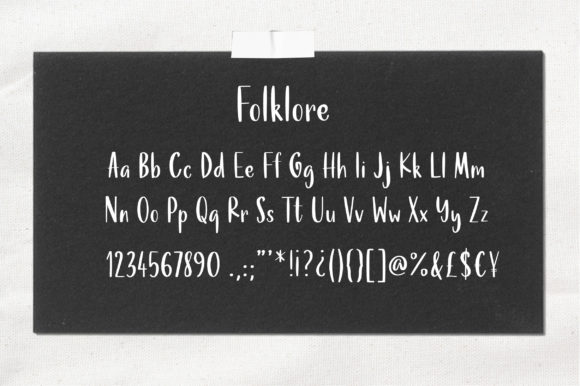 Folklore
Aa Bb Cc Dd Ee Ff Gg Hh Ii Jj Kk Ll Mm
Nn Oo Pp Qq Rr Ss Tt Uu Vv Ww Xx Yy Zz
1234567890 .,:;"'*!¡?¿(){}[]@%&£$€¥